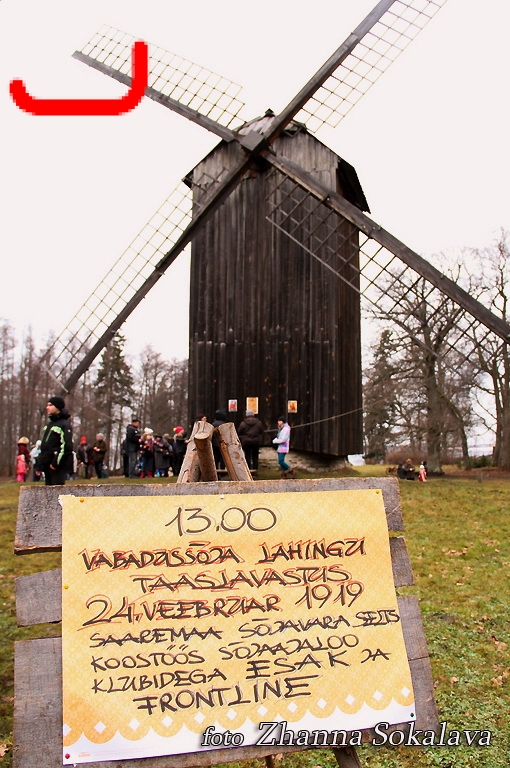 13.00
VABADUSSÕJA LAHINGU
TAASLAVASTUS
24. VEEBRUAR 1919
SAAREMAA SÕJAVARA SELTS
KOOSTÖÖS SÕJAAJALOO
KLUBIDEGA ESAK JA
FRONTLINE
foto Zhanna Sokalava